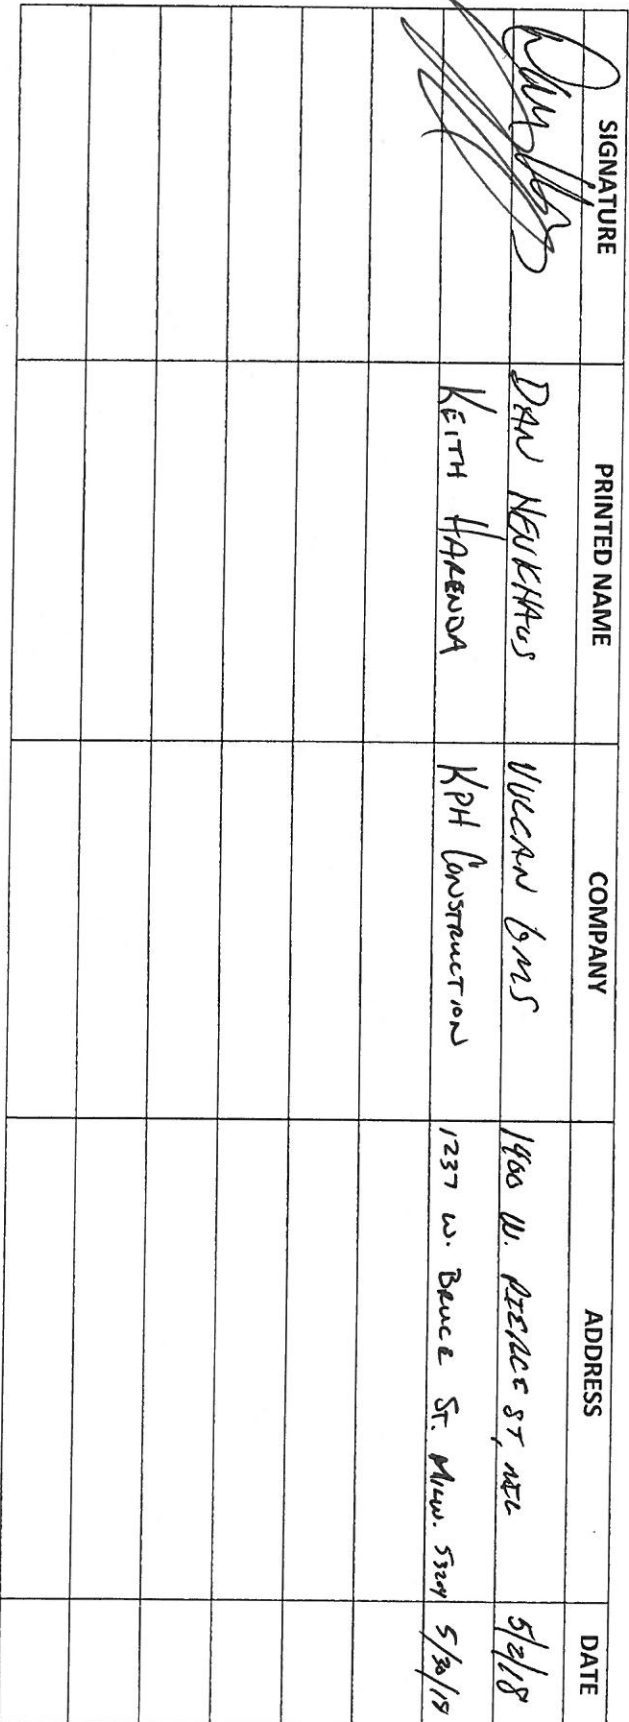 SIGNATURE PRINTED NAME COMPANY ADDRESS DATE
DAN NEUKHAUS VULCAN GMS 1400 W. PIERCE ST, MIL 5/2/18
KEITH HARENDA KPH CONSTRUCTION 1237 W. BRUCE ST. MILW. 53204 5/30/19